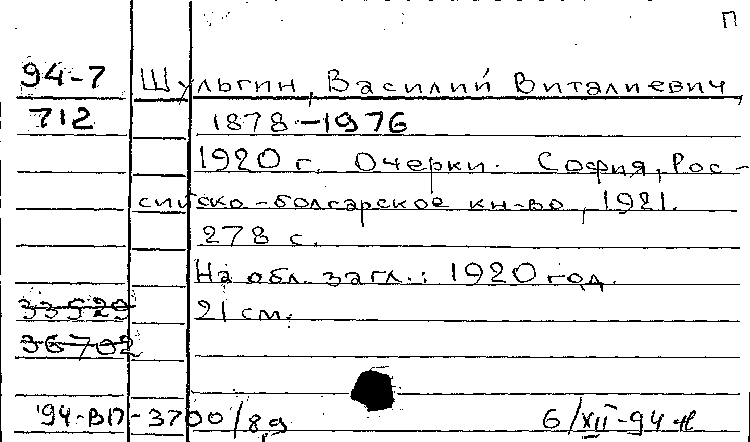 П
94-7 Шульгин, Василий Виталиевич,
712 1878-1976
1920 г. Очерки. София, Рос-
сийско-болгарское кн-во, 1921.
278 с.
На обл. загл.: 1920 год.
33529 21 см.
36702
94-ВП-3700/89 6/XII-94 н